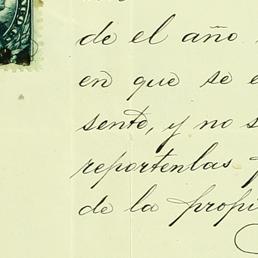 de el año
en que se e
sente, y no s
reportenlas
de la propi